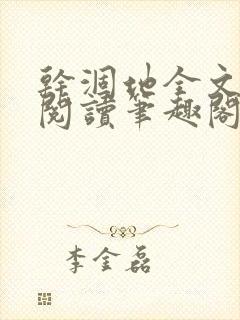 幹涸地全文
閱讀筆趣閣
李金磊